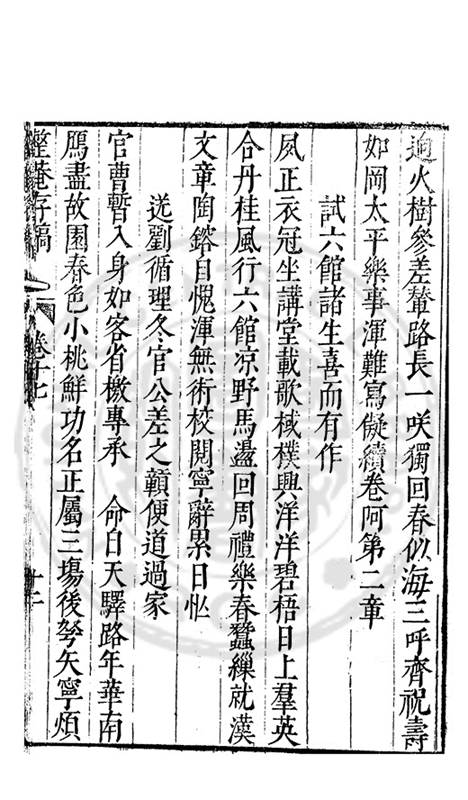 逈火樹參差輦路長一咲獨回春似海三呼齊祝壽
如岡太平樂事渾難寫儗續卷阿第二章
試六館諸生喜而有作
夙正衣冠坐講堂載歌棫樸興洋洋碧梧日上羣英
合丹桂風行六館凉野馬盪回周禮樂春蠶繅就漢
文章陶鎔自愧渾無術校閱寧辭累日忙
送劉循理冬官公差之贑便道過家
官曹暫入身如客省檄專承 命自天驛路年華南
鴈盡故園春色小桃鮮功名正屬三塲後弩矢寧煩
整菴存稿 卷十七 十二